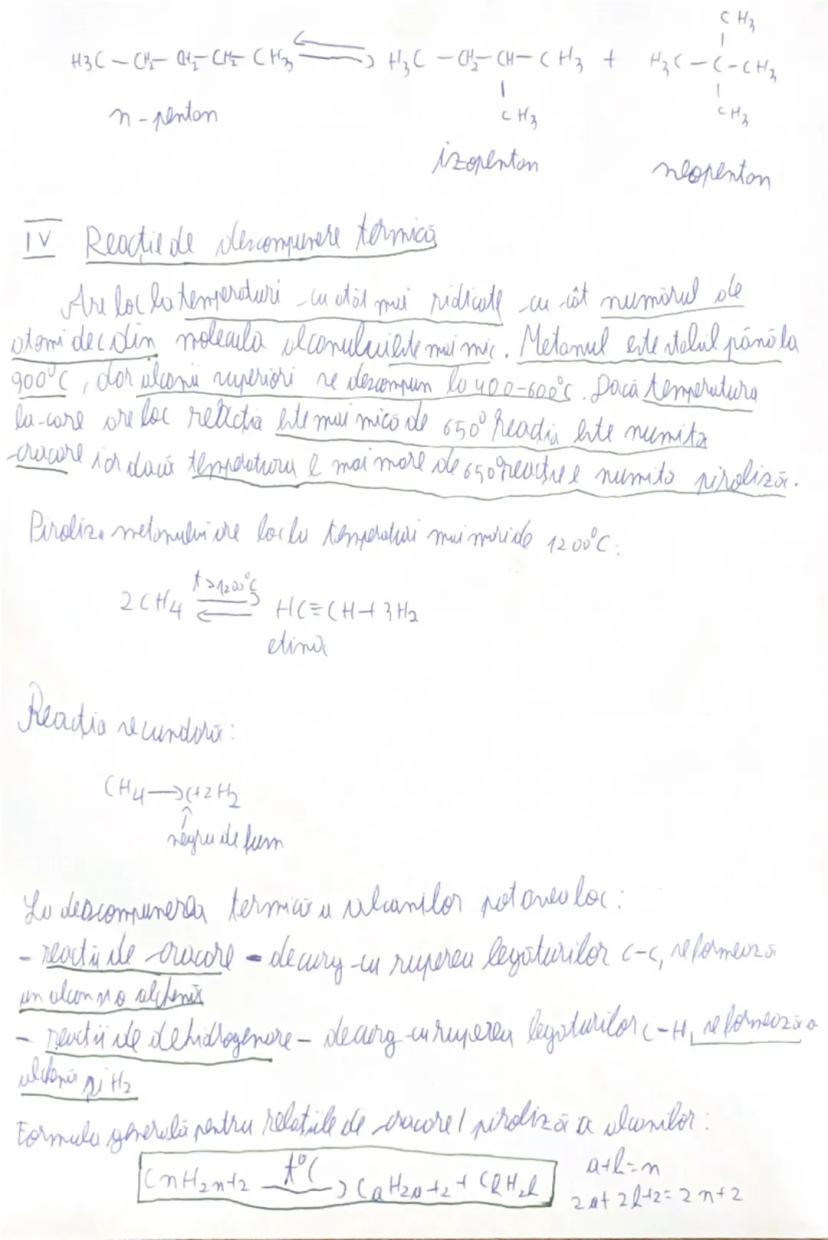 CH3
H3C – CH2 – CH2 – CH2 – CH3 ⇌ H3C – CH2 – CH – CH3 + H3C – C – CH3
CH3 CH3
n-pentan
izopentan neopentan
IV Reacție de descompunere termică
Are loc la temperaturi cu atât mai ridicate cu cât numărul de
atomi de C din molecula alcanului este mai mic. Metanul este stabil până la
900°C, dar alcanii superiori se descompun la 400-600°C. Dacă temperatura
la care are loc reacția este mai mică de 650° reacția este numită
cracare iar dacă temperatura e mai mare de 650° reacția e numită piroliză.
Piroliza metanului are loc la temperaturi mai mari de 1200°C:
2CH4 ⇌ t>1200°C HC≡CH+3H2
etină
Reacția secundară:
CH4 → C+2H2
↑
negru de fum
La descompunerea termică a alcanilor pot avea loc:
- reacții de cracare - decurg cu ruperea legăturilor C-C, se formează
un alcan și o alchenă
- reacții de dehidrogenare - decurg cu ruperea legăturilor C-H, se formează o
alchenă și H2
Formula generală pentru relațiile de cracare / piroliză a alcanilor:
CnH2n+2 t°C → CaH2a+2 + CbH2b a+b=n
2a+2b+2=2n+2